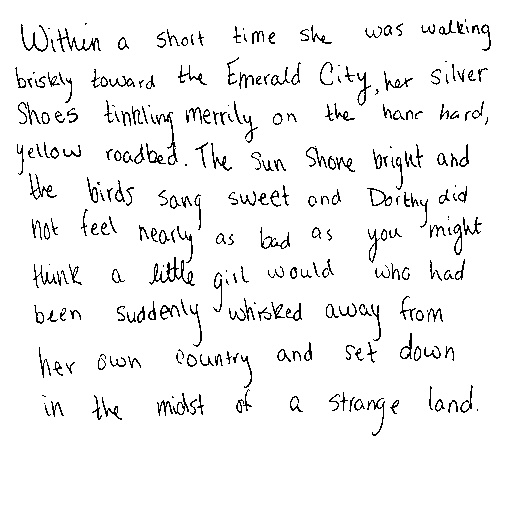 Within a short time she was walking
briskly toward the Emerald City, her silver
Shoes tinkling merrily on the hanr hard,
yellow roadbed. The sun shone bright and
the birds sang sweet and Dorthy did
not feel nearly as bad as you might
think a little girl would who had
been suddenly whisked away from
her own country and set down
in the midst of a strange land.